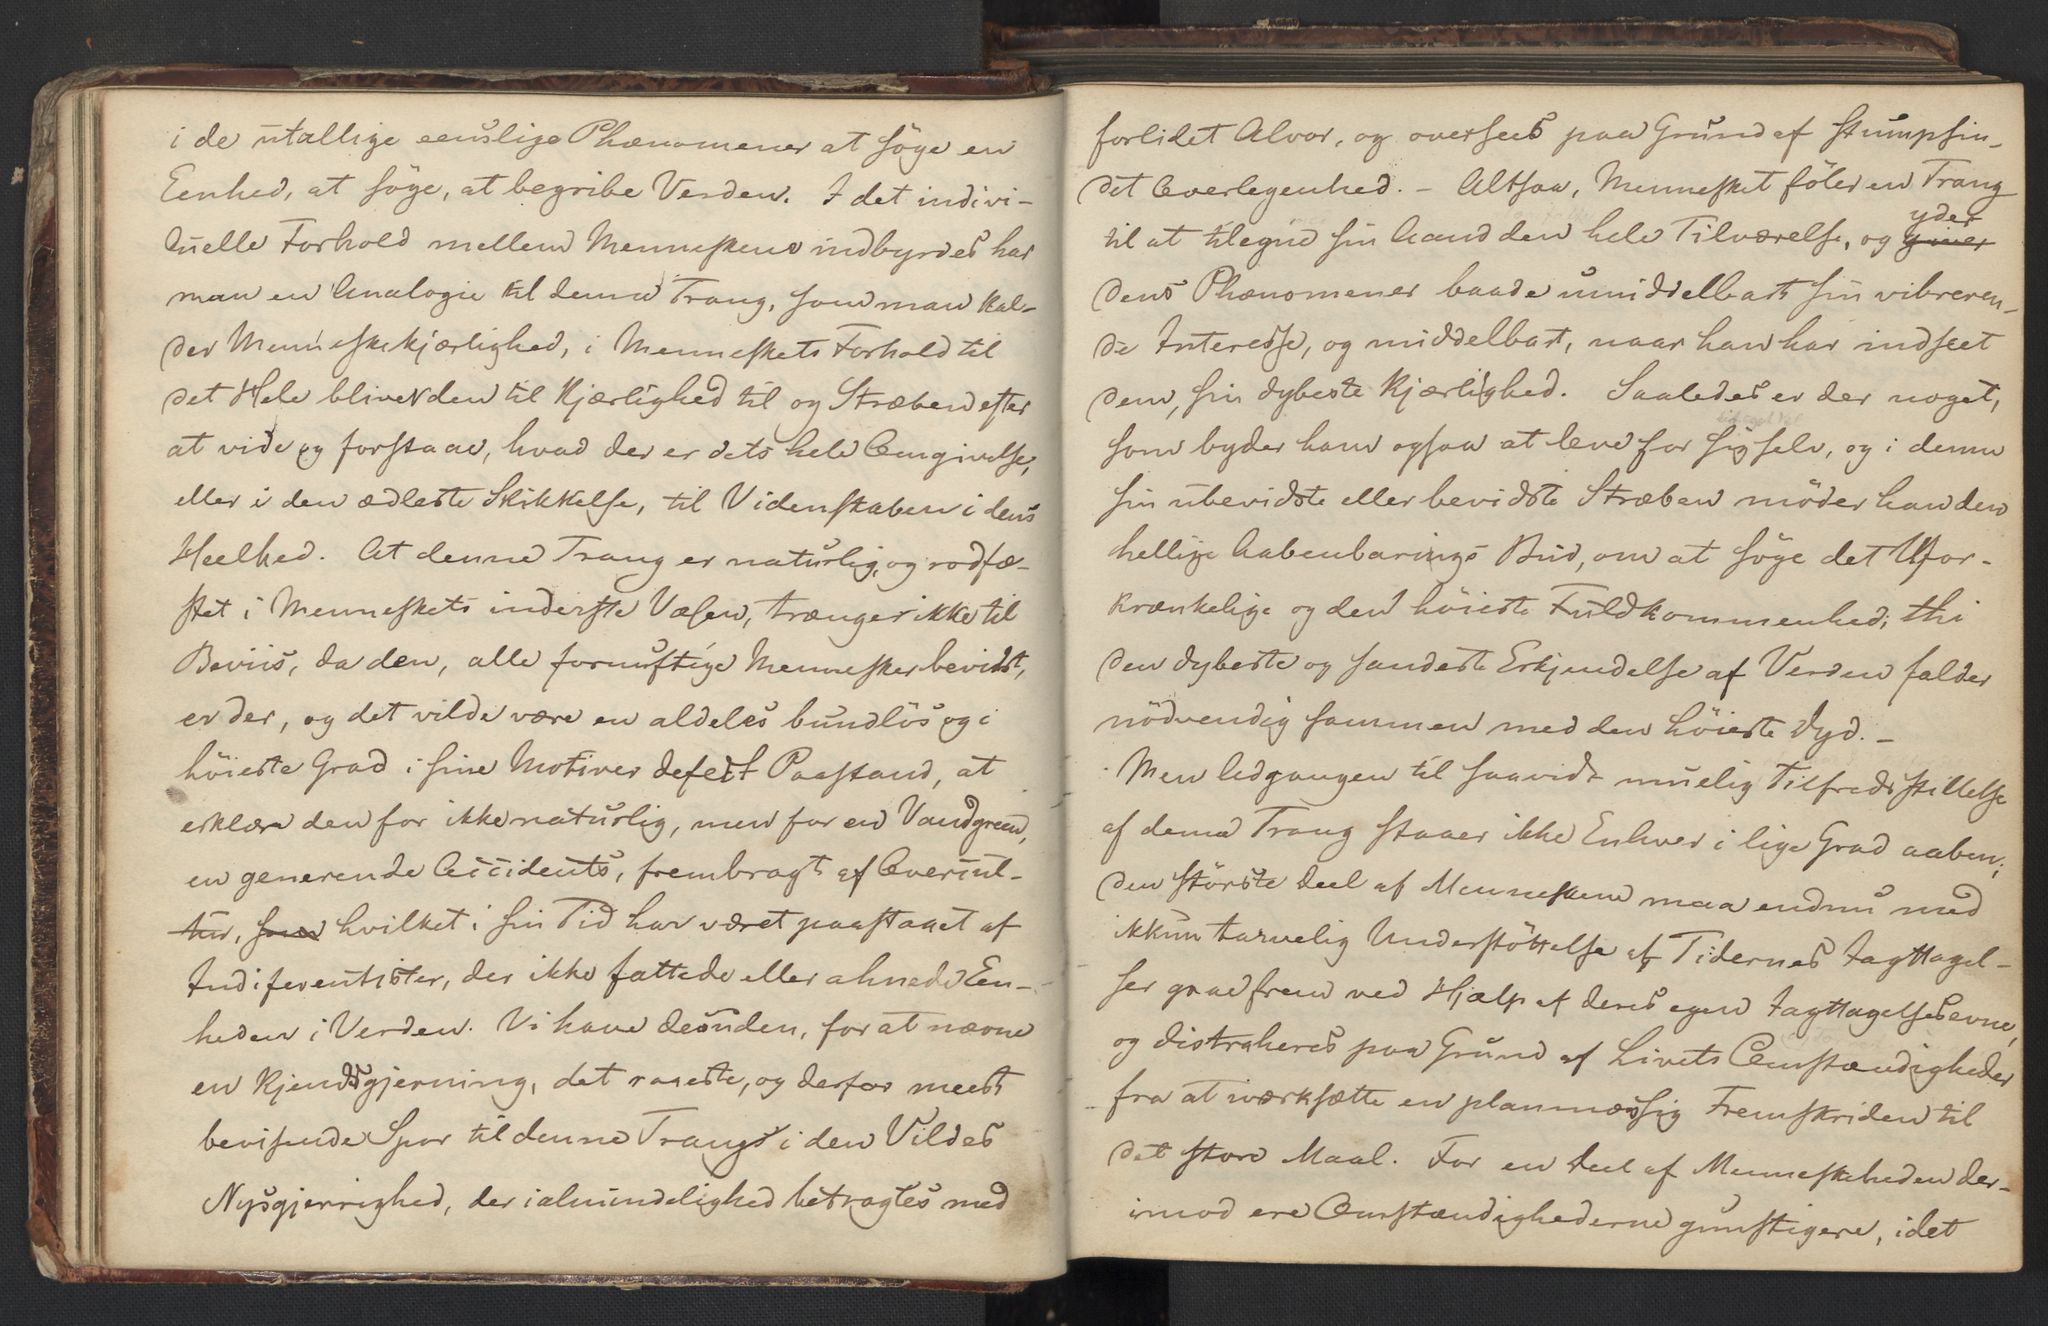 i de utallige eenslige Phænomener at søge en
Eenhed, at søge, at begribe Verden. I det indivi-
duelle Forhold mellem Menneskene indbyrdes har
man en Analogie til denne Trang, som man kal-
der Menneskekjærlighed, i Menneskets Forhold til
det Hele bliver den til Kjærlighed til og Stræben efter
at vide og forstaae, hvad der er dets hele Omgivelse,
eller i den ædleste Skikkelse, til Videnskaben i dens
Heelhed. At denne Trang er naturlig, og rodfæ-
stet i Menneskets inderste Væsen, trænger ikke til
Beviis, da den, alle fornuftige Mennesker bevidst,
er der, og det vilde være en aldeles bundløs og i
höieste Grad i sine Motiver defect Paastand, at
erklære den for ikke naturlig, men for en Vandgreen,
en generende Accidents, frembragt af Overcul-
tur, som hvilket i sin Tid har været paastaaet af
Indiferentister, der ikke fattede eller ahnede Een-
heden i Verden. Vi have desuden, for at nævne
en Kjendsgjerning, det raaeste, og derfor meest
bevisende Spor til denne Trang i den Vildes
Nysgjerrighed, der i almindelighed betragtes med
forlidet Alvor, og oversees paa Grund af stumpsin-
det Overlegenhed. - Altsaa, Mennesket föler en Trang
yder
til at tilegne sin Aand den hele Tilværelse, og giver
dens Phænomener baade umiddelbart sin vibreren-
de Interesse, og middelbart, naar han har indseet
dem, sin dybeste Kjærlighed. Saaledes er der noget,
som byder ham ogsaa at leve for sig selv, og i denne
sin ubevidste eller bevidste Stræben möder han den
hellige Aabenbarings Bud, om at søge det Ufor-
krænkelige og den höieste Fuldkommenhed; thi
den dybeste og sandeste Erkjendelse af Verden falder
nödvendig sammen med den höieste Dyd. -
Men Adgangen til saavidt muelig Tilfredsstillelse
af denne Trang staaer ikke Enhver i lige Grad aaben;
den störste Deel af Menneskene maa endnu med
ikkun tarvelig Understöttelse af Tidernes Iagttagel-
ser gaae frem ved Hjælp af deres egen Iagttagelsesevne,
og distraheres paa Grund af Livets Omstændigheder
fra at iværksætte en planmæssig Fremskriden til
det store Maal. For en Deel af Menneskeheden der-
imod ere Omstændighederne gunstigere, idet